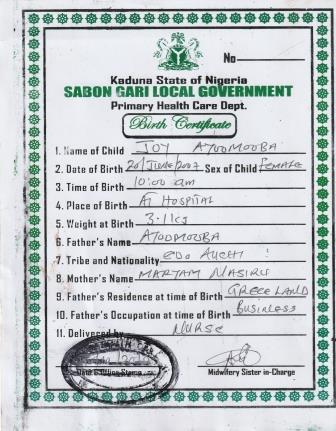 No
Kaduna State of Nigeria
SABON GARI LOCAL GOVERNMENT
Primary Health Care Dept.
Birth Certificate
1. Name of Child JOY AYOOMOOBA
2. Date of Birth 20/JUNE/2007 Sex of Child FEMALE
3. Time of Birth 10:00 am
4. Place of Birth At HOSPITAL
5. Weight at Birth 3.1kg
6. Father's Name AYOOMOOBA
7. Tribe and Nationality EDO AUCHI
8. Mother's Name MARYAM NASIRU
9. Father's Residence at time of Birth GREECE LAND
10. Father's Occupation at time of Birth BUSINESS
11. Delivered by NURSE
Midwifery Sister in-Charge